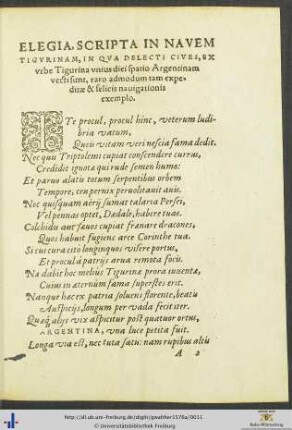 ELEGIA, SCRIPTA IN NAVEM
TIGVRINAM, IN QVA DELECTI CIVES, EX
vrbe Tigurina vnius diei spatio Argentinam
vecti sunt, raro admodum tam expe-
ditæ & felicis nauigationis
exemplo.
ITe procul, procul hinc, veterum ludi-
bria vatum,
Queis vitam veri nescia fama dedit.
Nec quis Triptolemi cupiat conscendere currus,
Credidit ignota qui rude semen humo:
Et paruo alatis totum serpentibus orbem
Tempore, ceu pernix peruolitauit auis.
Nec quisquam aërij sumat talaria Persei,
Vel pennas optet, Dædale, habere tuas.
Colchidis aut sæuos cupiat frænare dracones,
Quos habuit fugiens arce Corinthe tua.
Si cui cura cito longinquos visere portus,
Et procul à patrijs arua remota focis.
Na dabit hoc melius Tigurina prora iuuentæ,
Cuius in æternum fama superstes erit.
Nanque hæc ex patria soluens florente, beatis
Auspicijs, longum per vada fecit iter.
Quæq́; alijs vix aspicitur post quatuor ortus,
ARGENTINA, vna luce petita fuit.
Longa via est, nec tuta satis: nam rupibus altis
A 2
http://dl.ub.uni-freiburg.de/diglit/gwalther1576a/0011
© Universitätsbibliothek Freiburg